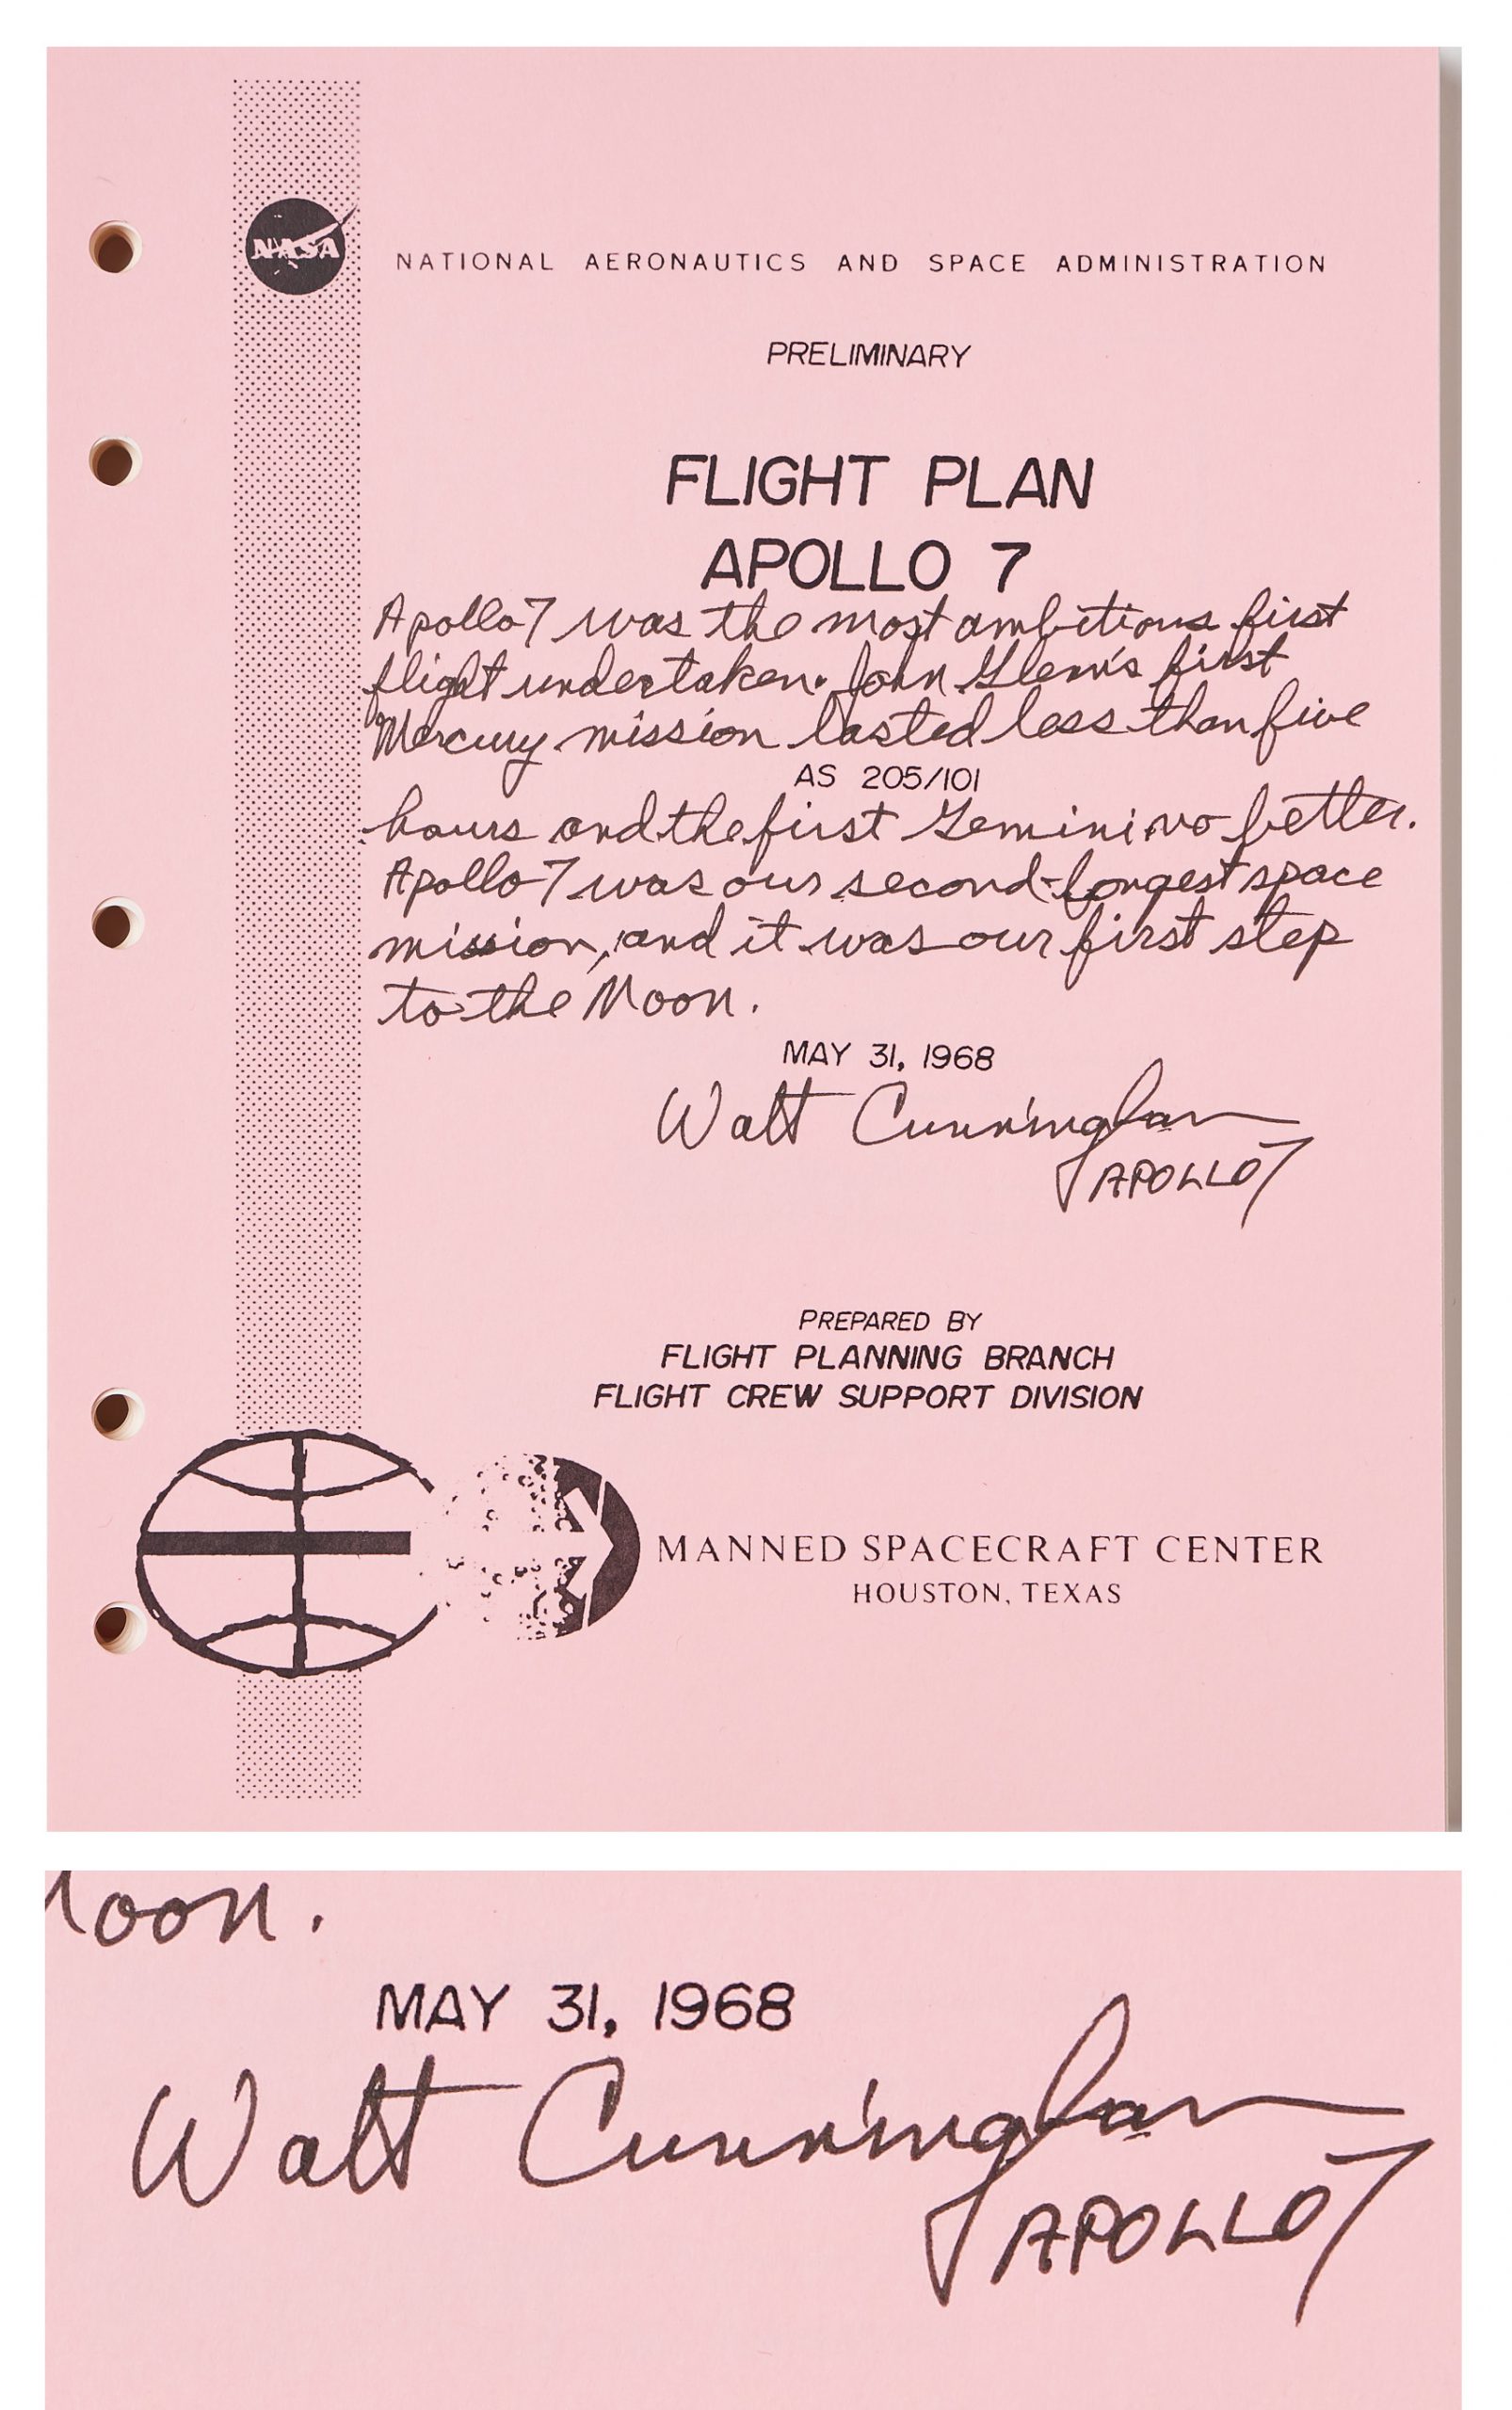 NASA
NATIONAL AERONAUTICS AND SPACE ADMINISTRATION
PRELIMINARY
FLIGHT PLAN
APOLLO 7
Apollo 7 was the most ambitious first
flight undertaken. John Glenn's first
Mercury mission lasted less than five
AS 205/101
hours and the first Gemini no better.
Apollo 7 was our second-longest space
mission, and it was our first step
to the Moon.
MAY 31, 1968
Walt Cunningham
APOLLO 7
PREPARED BY
FLIGHT PLANNING BRANCH
FLIGHT CREW SUPPORT DIVISION
MANNED SPACECRAFT CENTER
HOUSTON, TEXAS
Moon.
MAY 31, 1968
Walt Cunningham
APOLLO 7